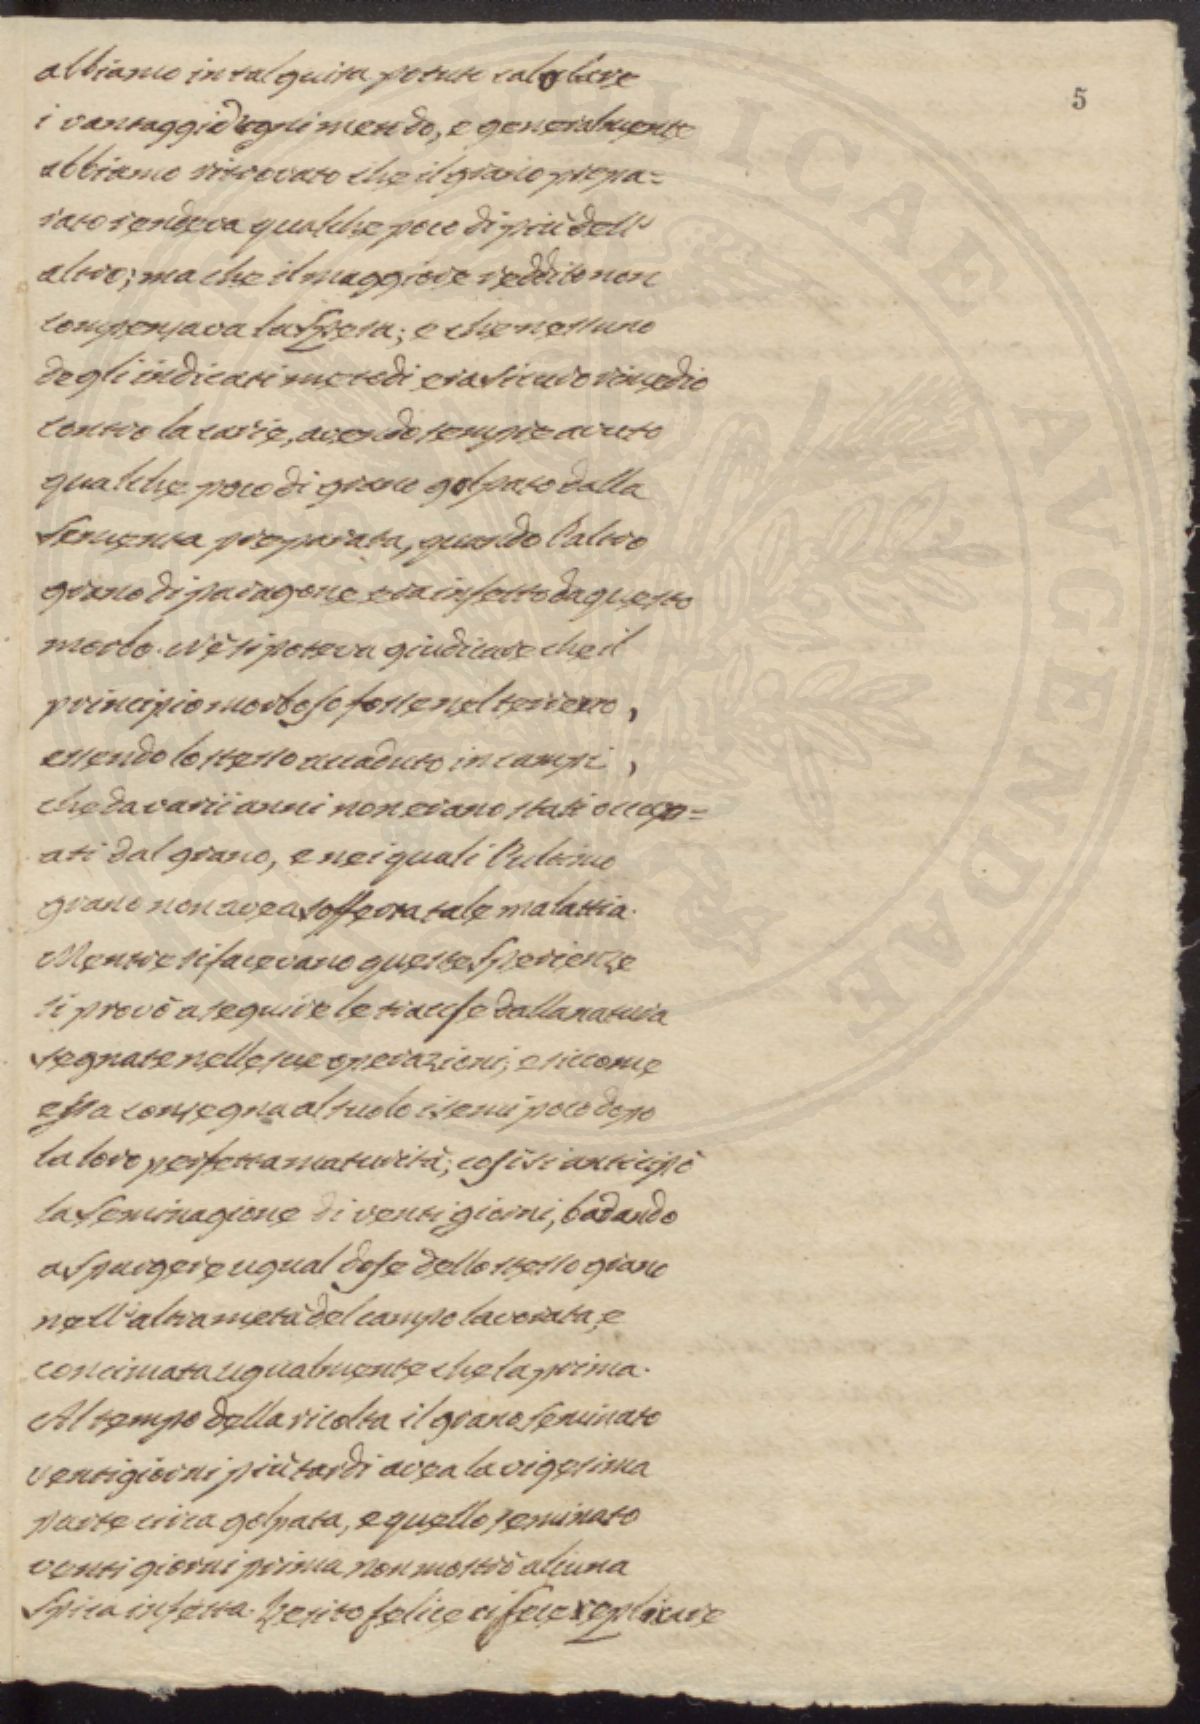 5
abbiamo in tal guisa potuto calcolare
i vantaggi d'ogni metodo, e generalmente
abbiamo ritrovato che il grano prepa=
rato rendeva qualche poco di più dell'
altro; ma che il maggiore reddito non
compensava la spesa; e che nessuno
degli indicati metodi era sicuro rimedio
contro la carie, avendo sempre avuto
qualche poco di grano golpato dalla
semenza preparata, quando l'altro
grano di paragone era infetto da questo
morbo. Nè si poteva giudicare che il
principio morboso fosse nel terreno,
essendo lo stesso accaduto in campi,
che da varii anni non erano stati occup=
ati dal grano, e nei quali l'ultimo
grano non avea sofferta tale malattia.
Mentre si facevano queste sperienze
si provò a seguire le traccse dalla natura
segnate nelle sue operazioni; e siccome
essa consegna al suolo i semi poco dopo
la loro perfetta maturità; così si anticipò
la seminagione di venti giorni, badando
a spargere ugual dose dello stesso grano
nell'altra metà del campo lavorata, e
concimata ugualmente che la prima.
Al tempo della ricolta il grano seminato
venti giorni più tardi avea la vigesima
parte circa golpata, e quello seminato
venti giorni prima non mostrò alcuna
spica infetta. L'esito felice ci fece replicare
PVBLICAE AVGENDAE